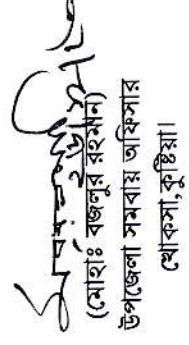 (মোহাঃ বজলুর রহমান)
উপজেলা সমবায় অফিসার
খোকসা,কুষ্টিয়া।